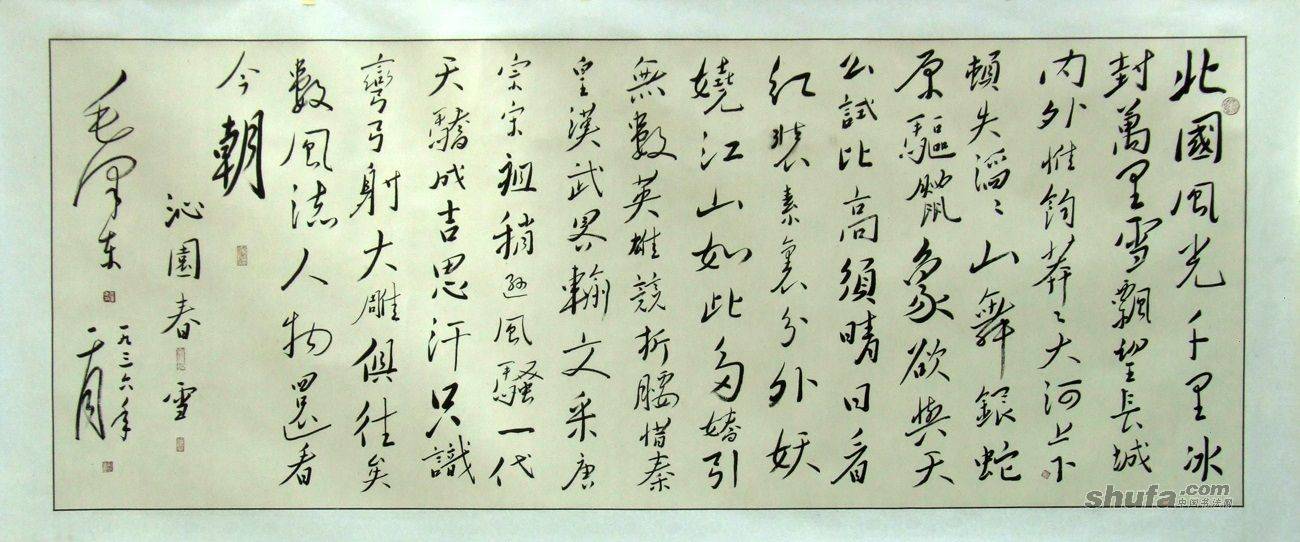 北國風光千里冰
封萬里雪飄望長城
内外惟餘莽〻大河上下
頓失滔〻山舞銀蛇
原驅臘象欲與天
公試比高須晴日看
紅裝素裹分外妖
嬈江山如此多嬌引
無數英雄競折腰惜秦
皇漢武畧輸文采唐
宗宋祖稍遜風騷一代
天驕成吉思汗只識
彎弓射大雕俱往矣
數風流人物還看
今朝
沁園春 雪
一九三六年
毛澤東
shufa.com
中国书法网